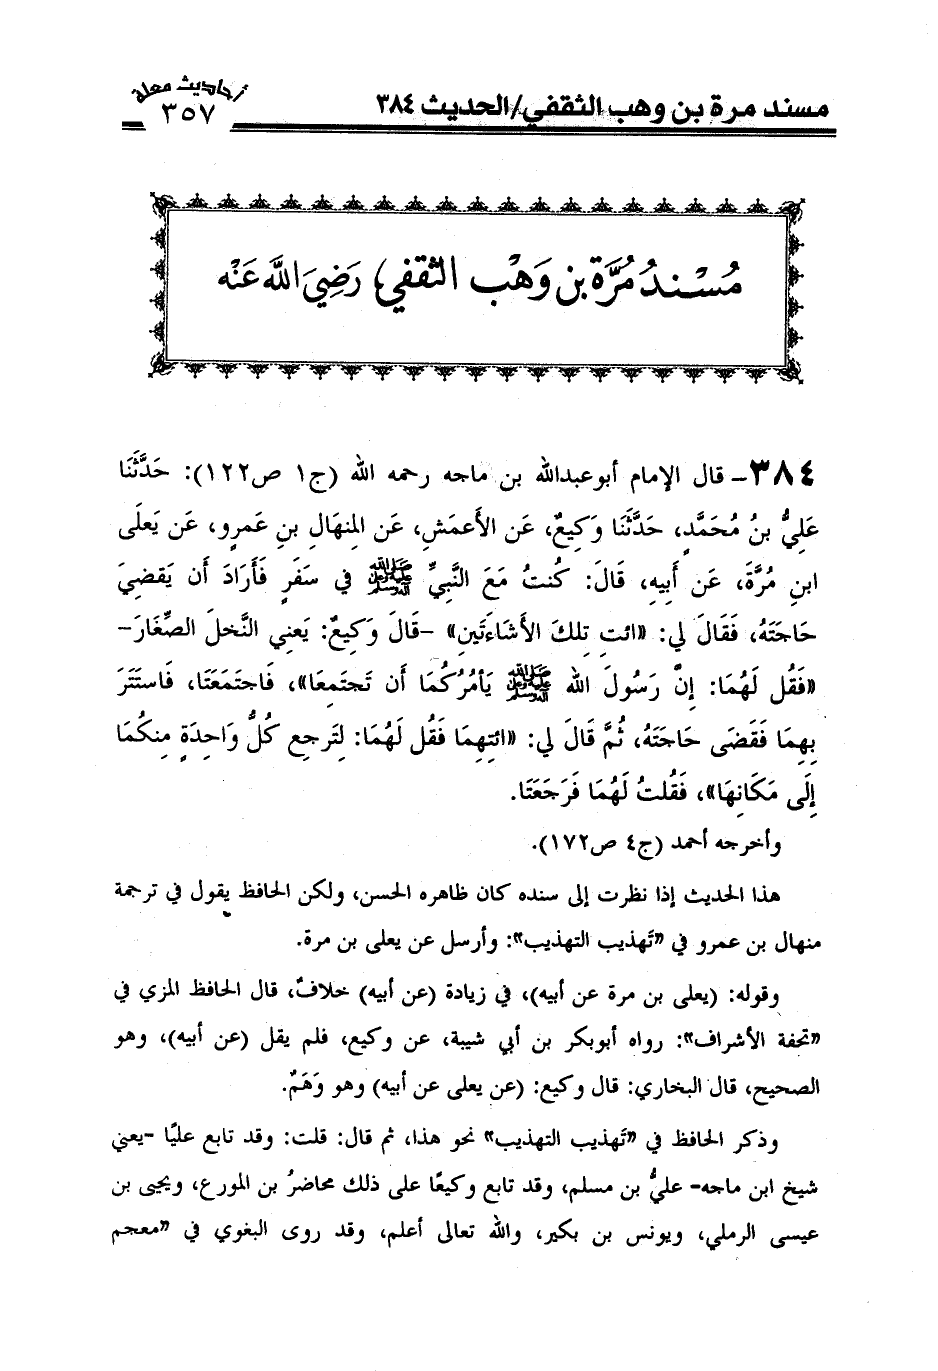 مسند مرة بن وهب الثقفي/الحديث ٣٨٤
أحاديث معلة
٣٥٧
مُسْندُ مُرَّة بن وَهْب الثقفي رَضِيَ اللَّه عَنْه
٣٨٤- قال الإمام أبوعبدالله بن ماجه رحمه الله (ج١ ص١٢٢): حَدَّثَنَا
عَلِيُّ بنُ مُحَمَّدٍ، حَدَّثَنَا وَكِيعٌ، عَن الأَعمَشِ، عَن المِنهَالِ بنِ عَمرٍو، عَن يَعلَى
ابنِ مُرَّةَ، عَن أَبِيهِ، قَالَ: كُنتُ مَعَ النَّبِيِّ ﷺ في سَفَرٍ فَأَرَادَ أَن يَقضِيَ
حَاجَتَهُ، فَقَالَ لي: «ائتِ تِلكَ الأَشَاءَتَينِ» -قَالَ وَكِيعٌ: يَعنِي النَّخلَ الصِّغَارَ-
«فَقُل لَهُمَا: إِنَّ رَسُولَ الله ﷺ يَأمُرُكُمَا أَن تَجتَمِعَا»، فَاجتَمَعَتَا، فَاستَتَرَ
بِهِمَا فَقَضَى حَاجَتَهُ، ثُمَّ قَالَ لي: «ائتِهِمَا فَقُل لَهُمَا: لِتَرجِع كُلُّ وَاحِدَةٍ مِنكُمَا
إِلَى مَكَانِهَا»، فَقُلتُ لَهُمَا فَرَجَعَتَا.
وأخرجه أحمد (ج٤ ص١٧٢).
هذا الحديث إذا نظرت إلى سنده كان ظاهره الحسن، ولكن الحافظ يقول في ترجمة
منهال بن عمرو في «تَهذيب التهذيب»: وأرسل عن يعلى بن مرة.
وقوله: (يعلى بن مرة عن أبيه)، في زيادة (عن أبيه) خلافٌ، قال الحافظ المزي في
«تحفة الأشراف»: رواه أبوبكر بن أبي شيبة، عن وكيع، فلم يقل (عن أبيه)، وهو
الصحيح، قال البخاري: قال وكيع: (عن يعلى عن أبيه) وهو وَهَمٌ.
وذكر الحافظ في «تَهذيب التهذيب» نحو هذا، ثم قال: قلت: وقد تابع عليًا -يعني
شيخ ابن ماجه- عليُّ بن مسلم، وقد تابع وكيعًا على ذلك محاضرُ بن المورع، ويحيى بن
عيسى الرملي، ويونس بن بكير، والله تعالى أعلم، وقد روى البغوي في «معجم